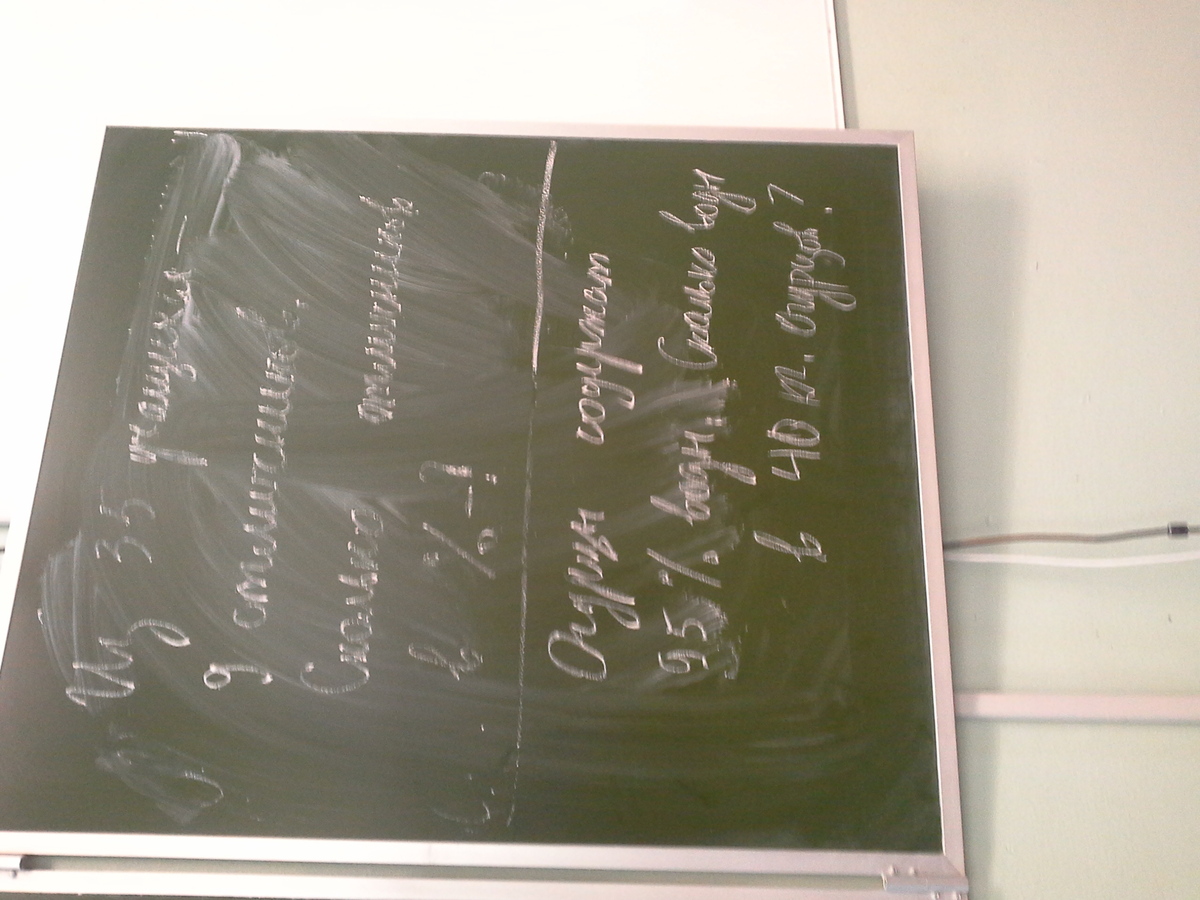 Из 35 учащихся
9 отличников.
Сколько отличников
в % - ?
Огурцы содержат
95% воды. Сколько воды
в 40 кг. огурцов?